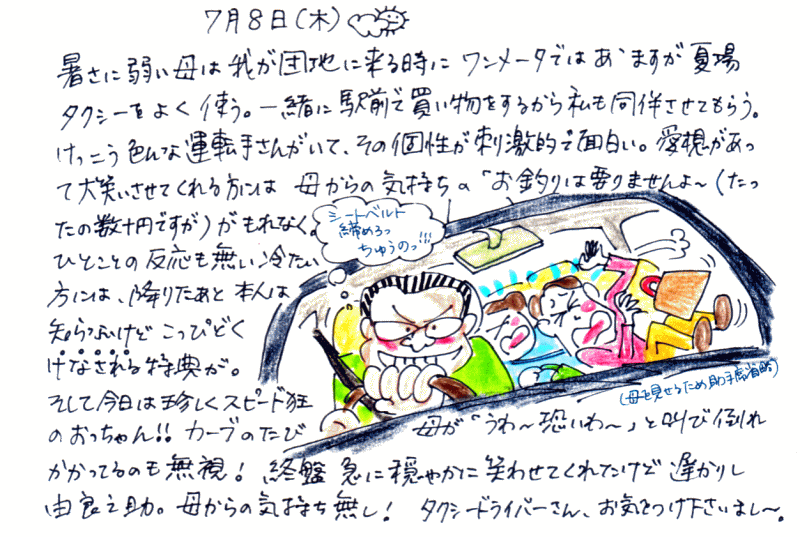 7月8日(木)
暑さに弱い母は我が団地に来る時に ワンメータではありますが夏場
タクシーをよく使う。一緒に駅前で買い物をするから私も同伴させてもらう。
けっこう色んな運転手さんがいて、その個性が刺激的で面白い。愛想があっ
て大笑いさせてくれる方には 母からの気持ちの「お釣りは要りませんよ〜(たっ
たの数十円ですが)がもれなく。
ひとことの反応も無い冷たい
方には、降りたあと 本人は
知らないけど こっぴどく
けなされる特典が。
そして今日は珍しくスピード狂
のおっちゃん!! カーブのたび
母が「うわ〜恐いわ〜」と叫び倒れ
かかってるのも無視! 終盤 急に穏やかに笑わせてくれたけど 遅かりし
由良之助。母からの気持ち無し! タクシードライバーさん、お気をつけ下さいまし〜。
シートベルト
締めろっ
ちゅうのっ!!!
(母を見せるため助手席省略)